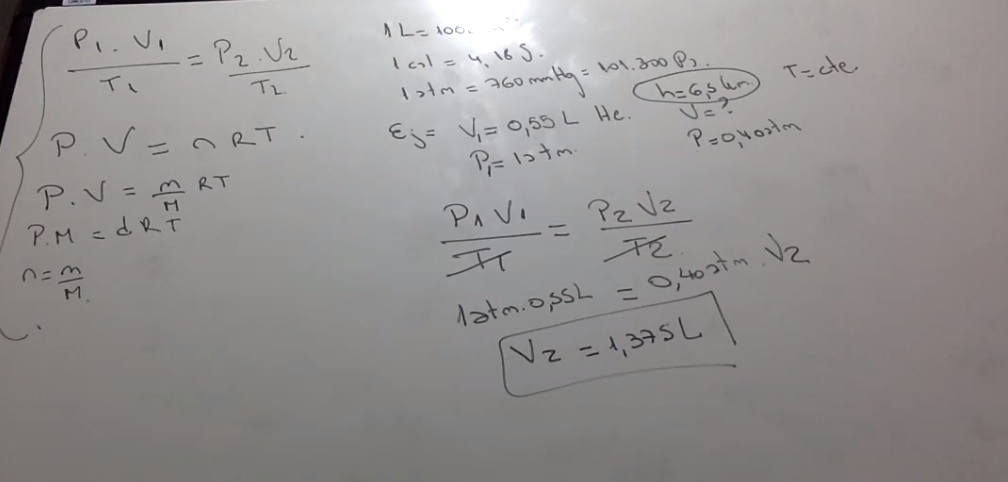 P1 . V1 / T1 = P2 . V2 / T2
P. V = n RT .
P. V = m/M RT
P. M = d R T
n = m/M.
1 L =
1 cal = 4,18 J.
1 atm = 760 mmHg = 101.300 Pa.
Ej = V1 = 0,55 L He.
P1 = 1 atm.
h = 6,5 km
T = cte
V = ?
P = 0,40 atm
P1 V1 / T1 = P2 V2 / T2
1 atm. 0,55L = 0,40 atm . V2
V2 = 1,375 L